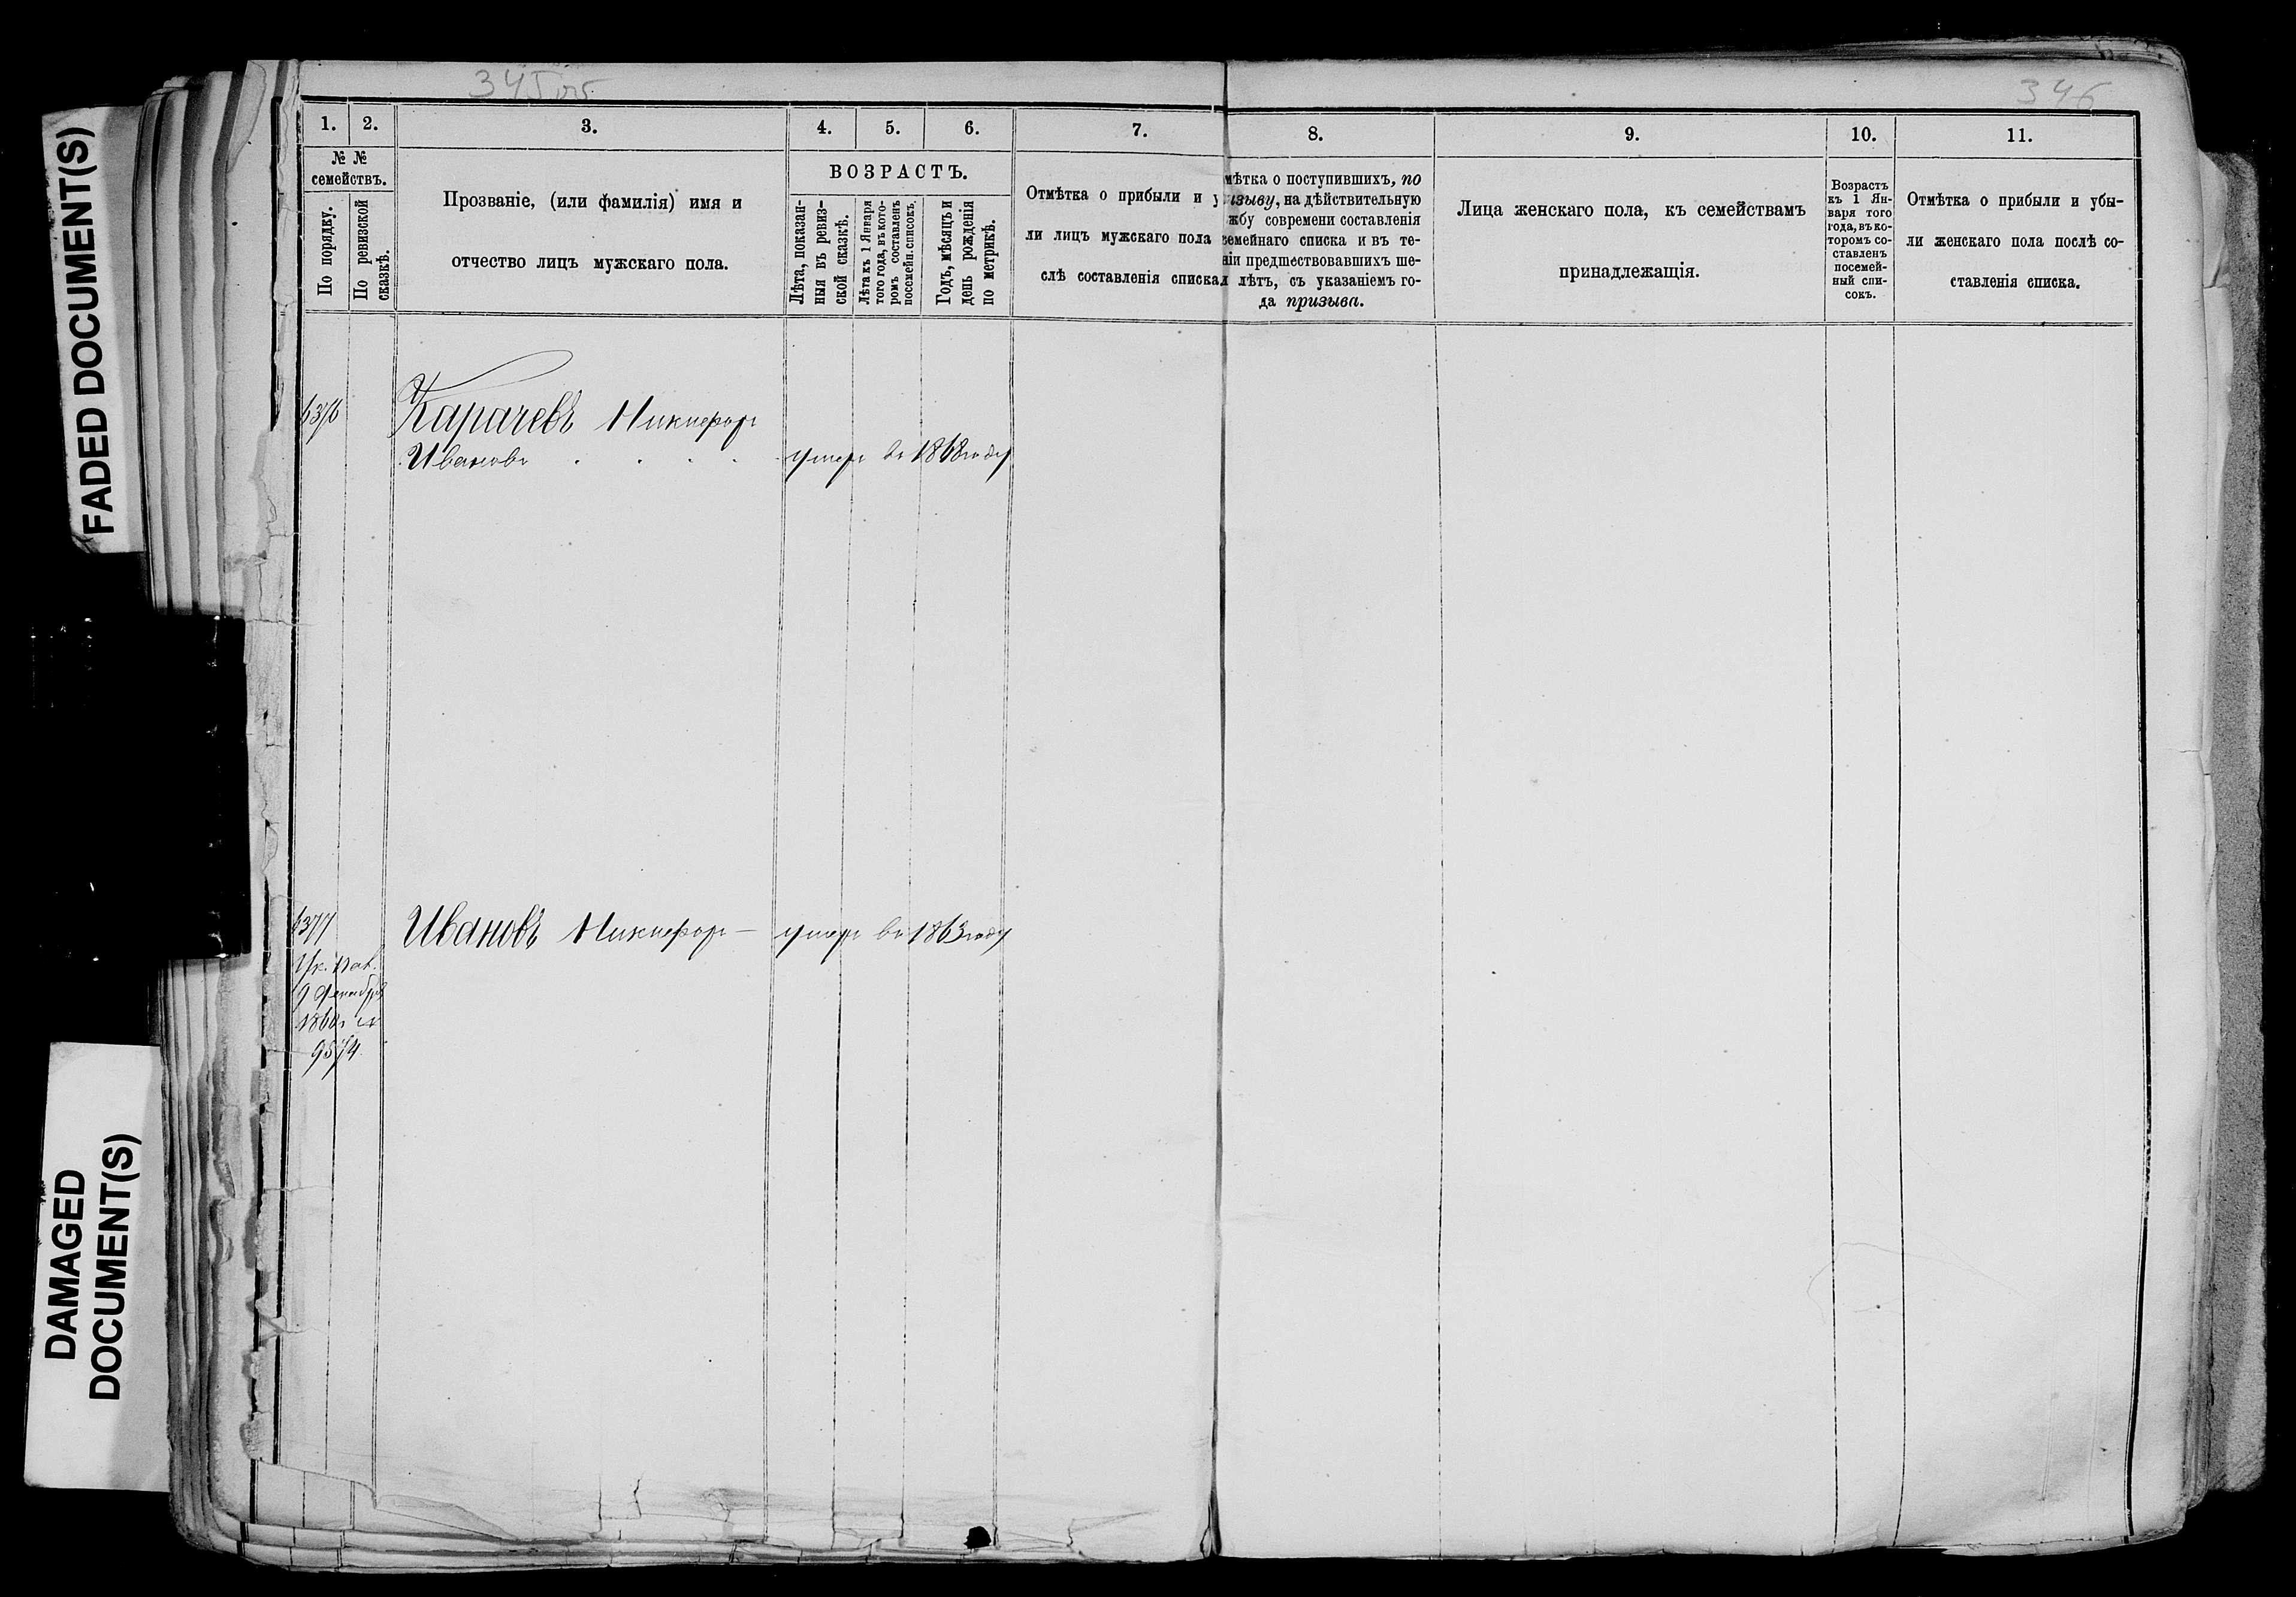 FADED DOCUMENT(S)
DAMAGED
DOCUMENT(S)
345об
346
1.
2.
3.
4.
5.
6.
7.
8.
9.
10.
11.
№ №
семействъ.
По порядку.
По ревизской
сказкѣ.
Прозваніе, (или фамилія) имя и
отчество лицъ мужскаго пола.
ВОЗРАСТЪ.
Лѣта, показан-
ныя въ ревиз-
ской сказкѣ.
Лѣта къ 1 Января
того года, въ кото-
ромъ составленъ
посемейн. списокъ.
Годъ, мѣсяцъ и
день рожденія
по метрикѣ.
Отмѣтка о прибыли и у
ли лицъ мужскаго пола
слѣ составленія списка
мѣтка о поступившихъ, по
изыву, на дѣйствительную
жбу современи составленія
семейнаго списка и въ те-
ніи предшествовавшихъ ше-
лѣтъ, съ указаніемъ го-
да призыва.
Лица женскаго пола, къ семействамъ
принадлежащія.
Возрастъ
къ 1 Ян-
варя того
года, въ ко-
торомъ со-
ставленъ
посемей-
ный спи-
сокъ.
Отмѣтка о прибыли и убы-
ли женскаго пола послѣ со-
ставленія списка.
6376
Карачевъ Никифоръ
Ивановъ умеръ въ 1868 году
6377
Ивановъ Никифоръ — умеръ въ 1863 году
Ук. Пал.
9 Декабря
1860г №
9574.